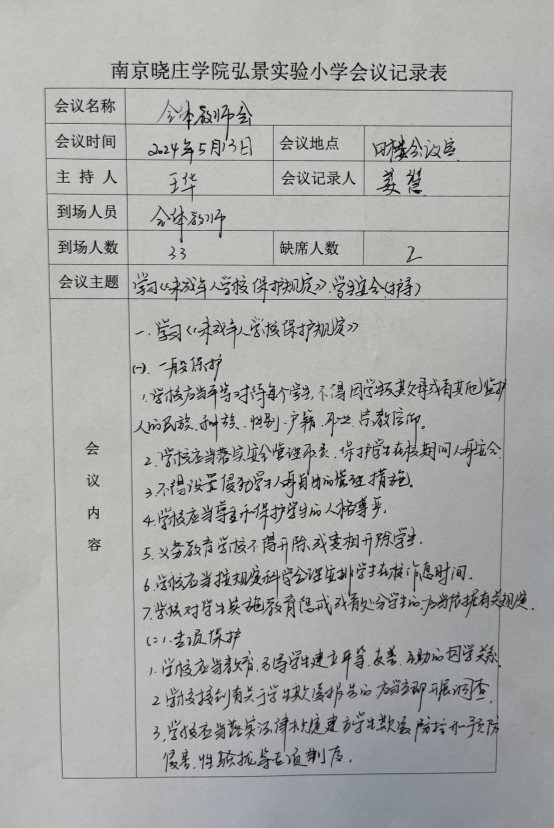 南京晓庄学院弘景实验小学会议记录表
会议名称 全体教师会
会议时间 2024年5月13日 会议地点 四楼会议室
主 持 人 王华 会议记录人 慧
到场人员 全体教师
到场人数 33 缺席人数 2
会议主题 学习《未成年人学校保护规定》、学生安全(护导)
会议内容
一、学习《未成年人学校保护规定》
(一)、一般保护
1、学校应当平等对待每个学生,不得因学生及其父母或者其他监护
人的民族、种族、性别、户籍、职业、宗教信仰。
2、学校应当落实安全管理职责,保护学生在校期间人身安全
3、不得设置侵犯学生人身自由的管理措施。
4、学校应当尊重和保护学生的人格尊严。
5、义务教育学校不得开除或变相开除学生。
6、学校应当按规定科学合理安排学生在校作息时间。
7、学校对学生实施教育惩戒或者处分学生的,应当依据有关规定。
(二)、专项保护
1、学校应当教育、引导学生建立平等、友善、互助的同学关系
2、学校接到有关于学生欺凌报告的,应当立即开展调查
3、学校应当落实法律规定建立学生欺凌防控和预防
侵害、性骚扰等专项制度。